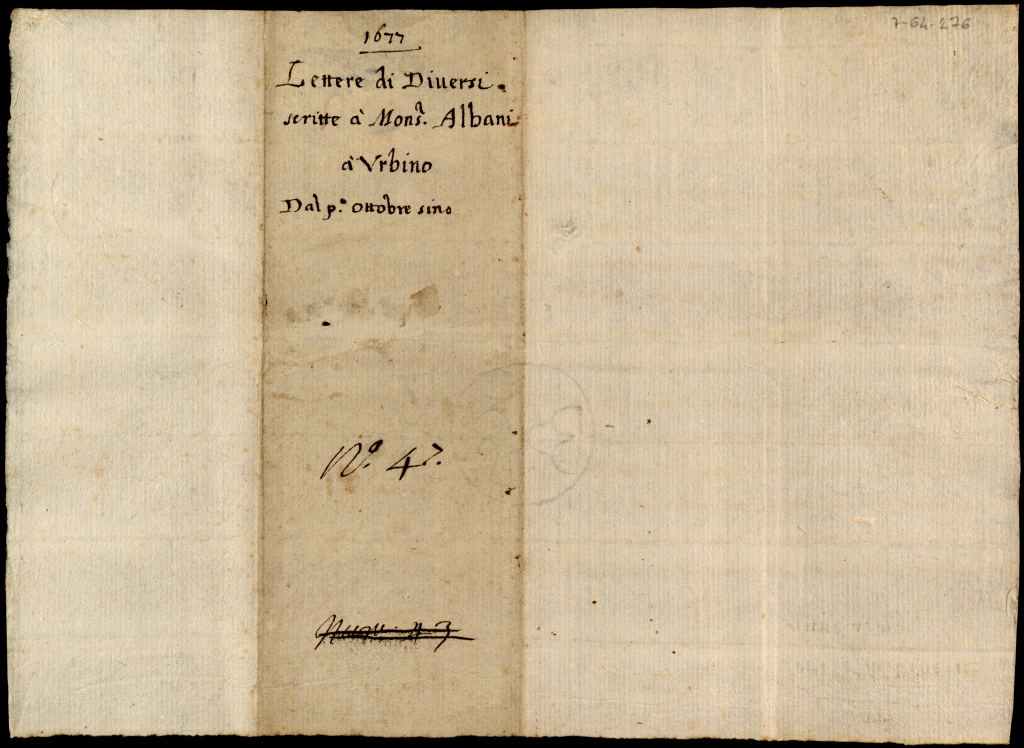 7-64-276
1677
Lettere di Diuersi.
scritte à Mons.r Albani
à Vrbino
Dal p.o Ottobre sino
N.o 47.